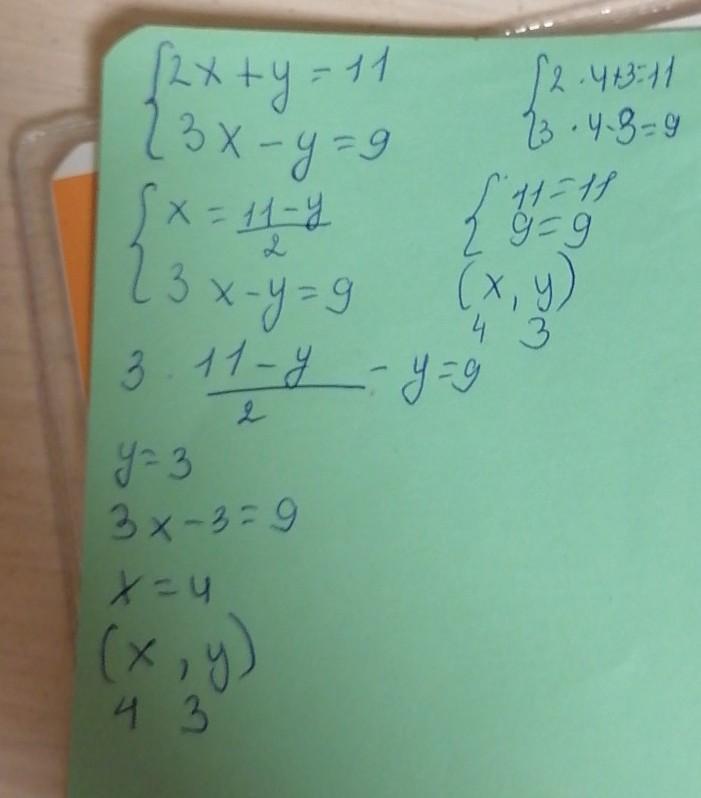 {2x+y=11
3x-y=9
{x=11-y
2
3x-y=9
3·11-y-y=9
2
y=3
3x-3=9
x=4
(x,y)
4 3
{2·4+3=11
3·4-3=9
{11=11
9=9
(x,y)
4 3